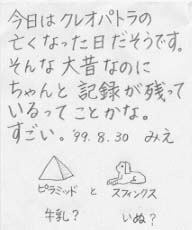 今日はクレオパトラの
亡くなった日だそうです。
そんな大昔なのに
ちゃんと記録が残って
いるってことかな。
すごい。'99.8.30 みえ
ピラミッド と スフィンクス
牛乳? いぬ?